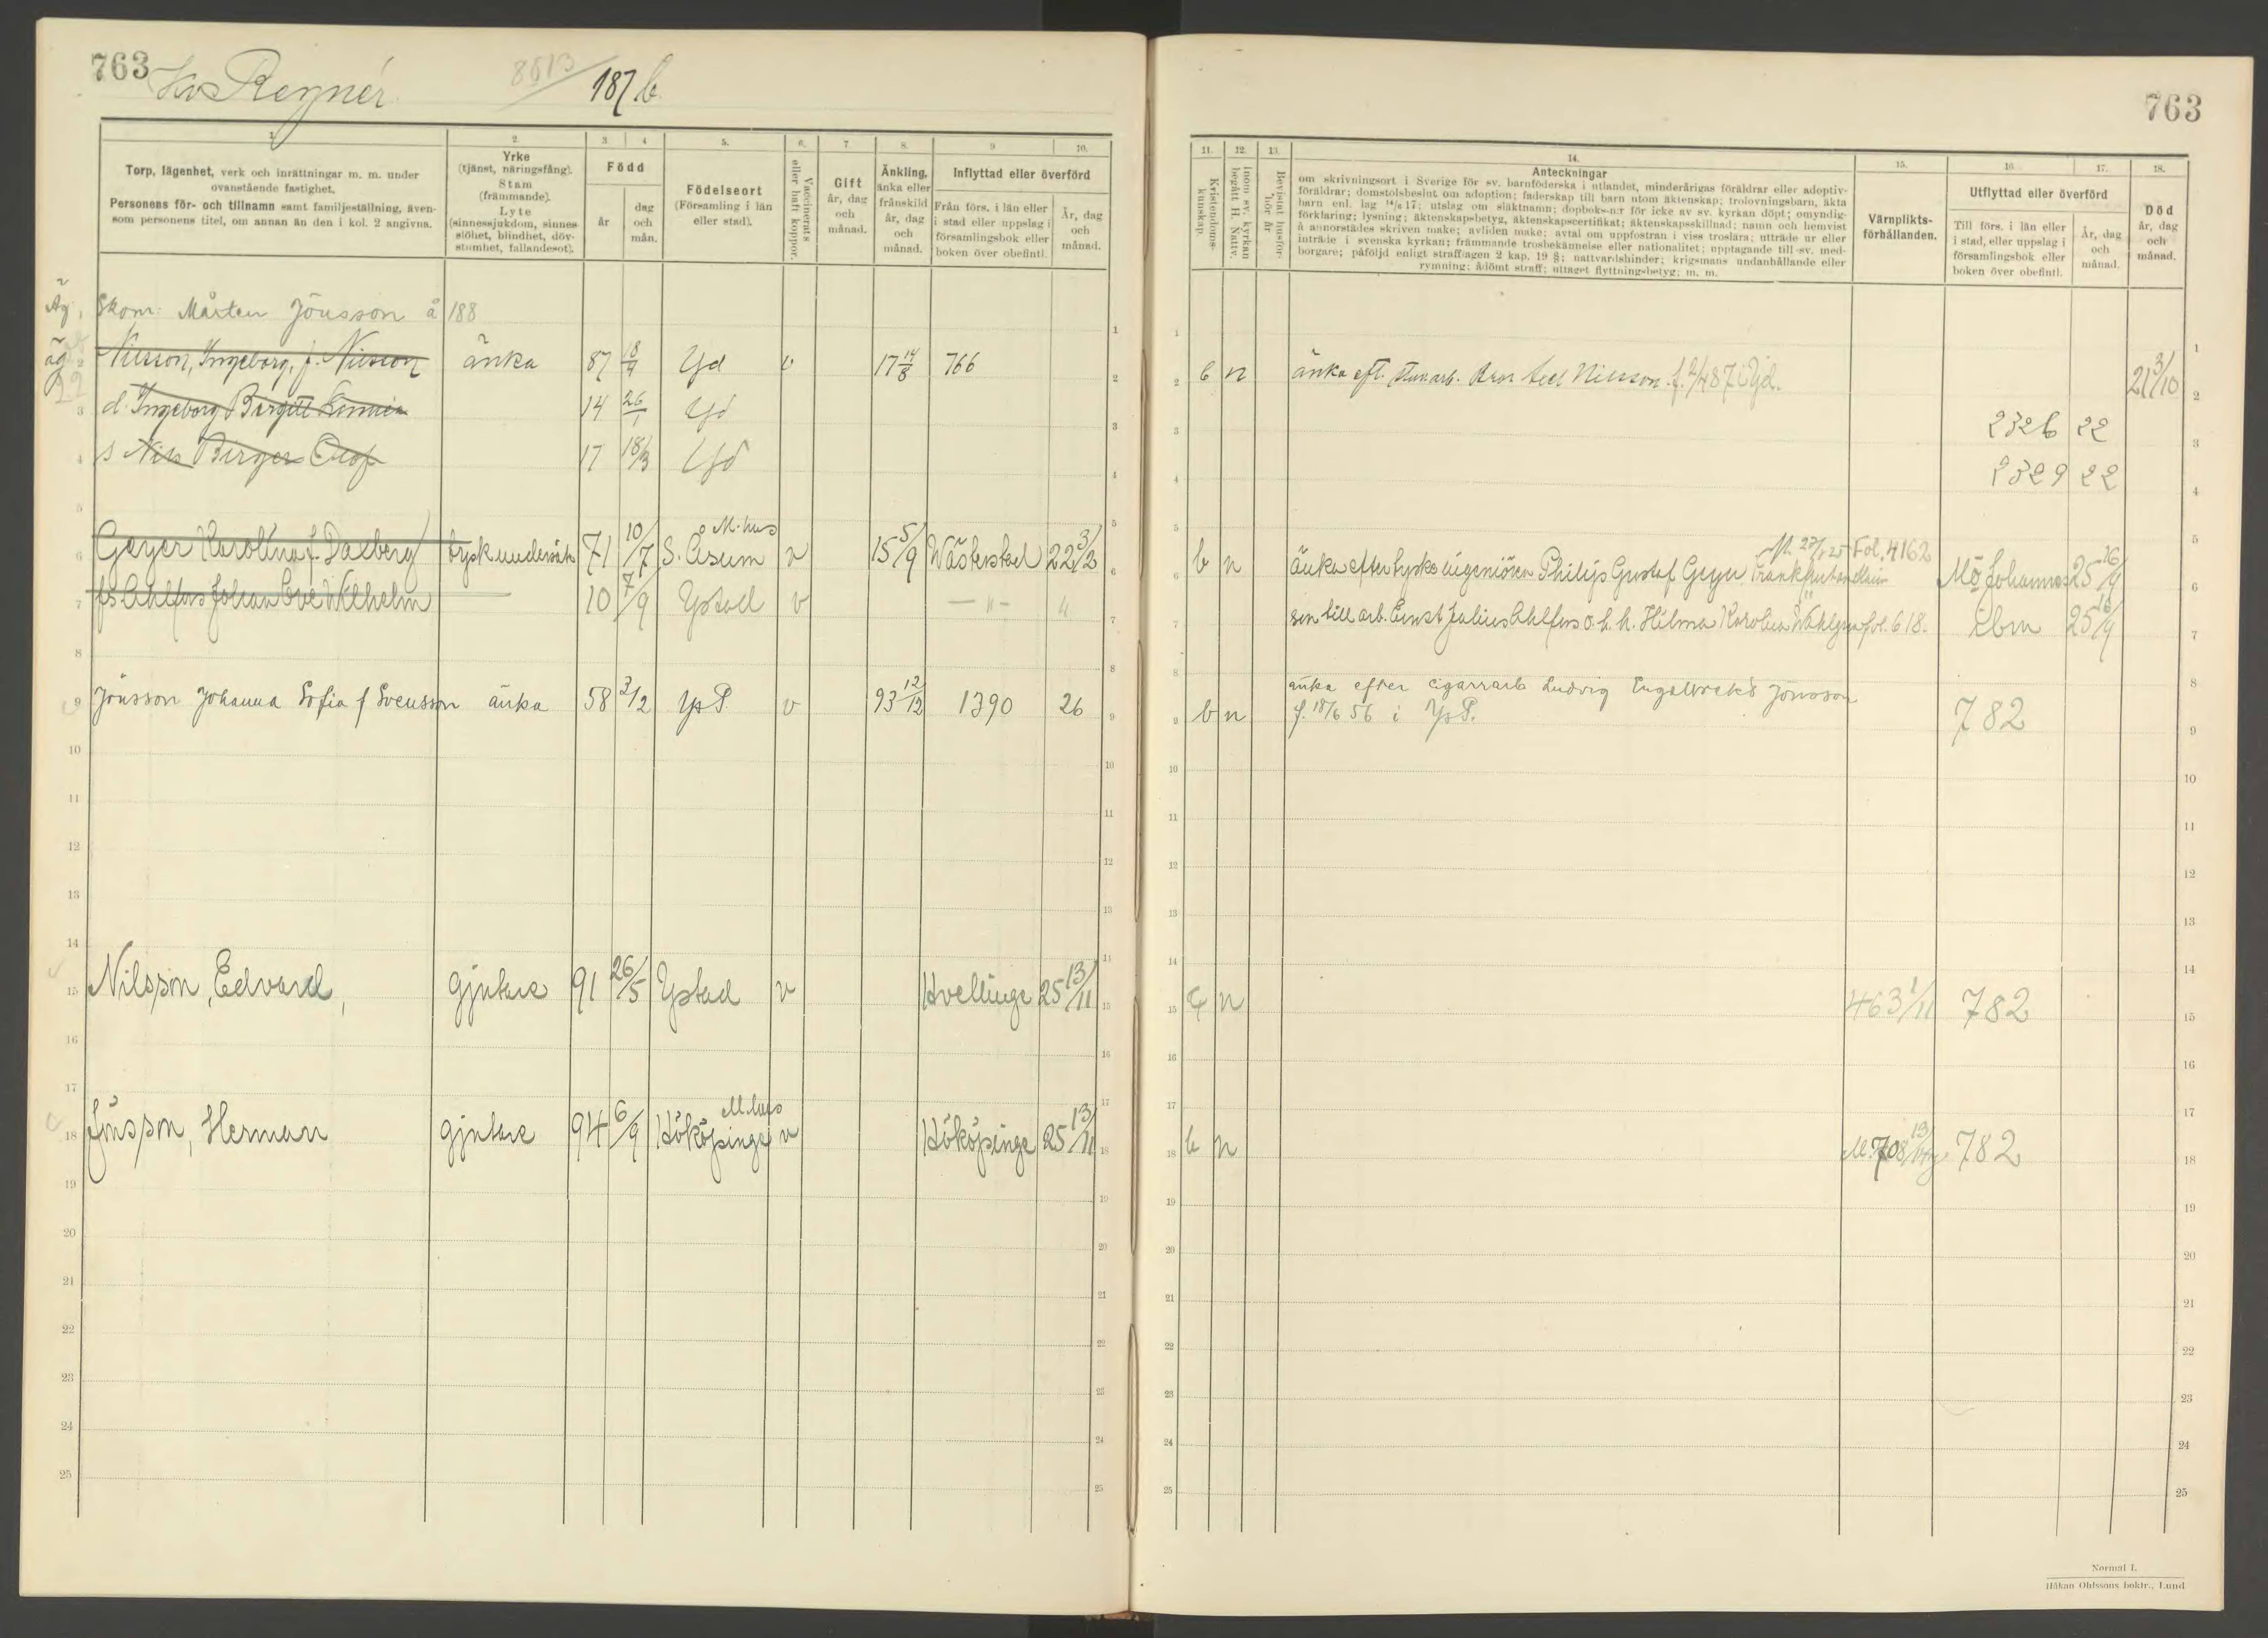 763
Kv Regnér
8513
187 b.
763
1.
Torp, lägenhet, verk och inrättningar m. m. under
ovanstående fastighet.
Personens för- och tillnamn samt familjeställning, även-
som personens titel, om annan än den i kol. 2 angivna.
2.
Yrke
(tjänst, näringsfång).
Stam
(främmande).
Lyte
(sinnessjukdom, sinnes-
slöhet, blindhet, döv-
stumhet, fallandesot).
3 4
Född
år
dag
och
mån.
5.
Födelseort
(Församling i län
eller stad).
6.
Vaccinerats
eller haft koppor.
7.
Gift
år, dag
och
månad.
8.
Änkling,
änka eller
frånskild
år, dag
och
månad.
9 10.
Inflyttad eller överförd
Från förs. i län eller
i stad eller uppslag i
församlingsbok eller
boken över obefintl.
År, dag
och
månad.
11.
Kristendoms-
kunskap.
12.
Inom sv. kyrkan
begått H. Nattv.
13.
Bevistat husför-
hör år
14.
Anteckningar
om skrivningsort i Sverige för sv. barnföderska i utlandet, minderårigas föräldrar eller adoptiv-
föräldrar; domstolsbeslut om adoption; faderskap till barn utom äktenskap; trolovningsbarn, äkta
barn enl. lag 14/6 17; utslag om släktnamn; dopboks-n:r för icke av sv. kyrkan döpt; omyndig-
förklaring; lysning; äktenskapsbetyg, äktenskapscertifikat; äktenskapsskillnad; namn och hemvist
å annorstädes skriven make; avliden make; avtal om uppfostran i viss troslära; utträde ur eller
inträde i svenska kyrkan; främmande trosbekännelse eller nationalitet; upptagande till sv. med-
borgare; påföljd enligt strafflagen 2 kap. 19 §; nattvardshinder; krigsmans undanhållande eller
rymning; ådömt straff; uttaget flyttningsbetyg; m. m.
15.
Värnplikts-
förhållanden.
16. 17.
Utflyttad eller överförd
Till förs. i län eller
i stad, eller uppslag i
församlingsbok eller
boken över obefintl.
År, dag
och
månad.
18.
Död
år, dag
och
månad.
Äg. Skom. Mårten Jönsson å 188
äg 2 Nilsson, Ingeborg, f. Nilsson änka 87 18/9 Yd v 17 14/8 766 b n änka eft. 21 3/10
3 d. Ingeborg Birgitt 14 26/1 Yd 2326 22
4 s Nils Birger Olof 17 18/3 Yd 2329 22
6 Geyer Karolina f. Dalberg tysk undersåte 71 10/7 S. Åsum M.hus v 15 5/9 Wästerstad 22 3/2 b n änka efter tyske ingeniören Philip Gustaf Geyer Fol. 4162 Mö Johannes 25 16/9
7 fs Ahlfors Johan Wilhelm 10 7/9 Ystad v — " — " son till arb. Ernst Julius Ahlfors o. h. h. Hilma Karolina Wahlgren fol. 618. ibm 25 16/9
9 Jönsson Johanna Sofia f Svensson änka 58 3/12 Ys P. v 93 12/12 1390 26 b n änka efter cigarrarb Ludvig Engelbrekt Jönsson
f. 18/6 56 i Ys P. 782
15 Nilsson, Edvard, gjutare 91 26/5 Ystad v Hvellinge 25 13/11 n 463 1/11 782
18 Jönsson, Herman gjutare 94 6/9 Hököpinge M.hus v Hököpinge 25 13/11 b n 782
Normal I.
Håkan Ohlssons boktr., Lund